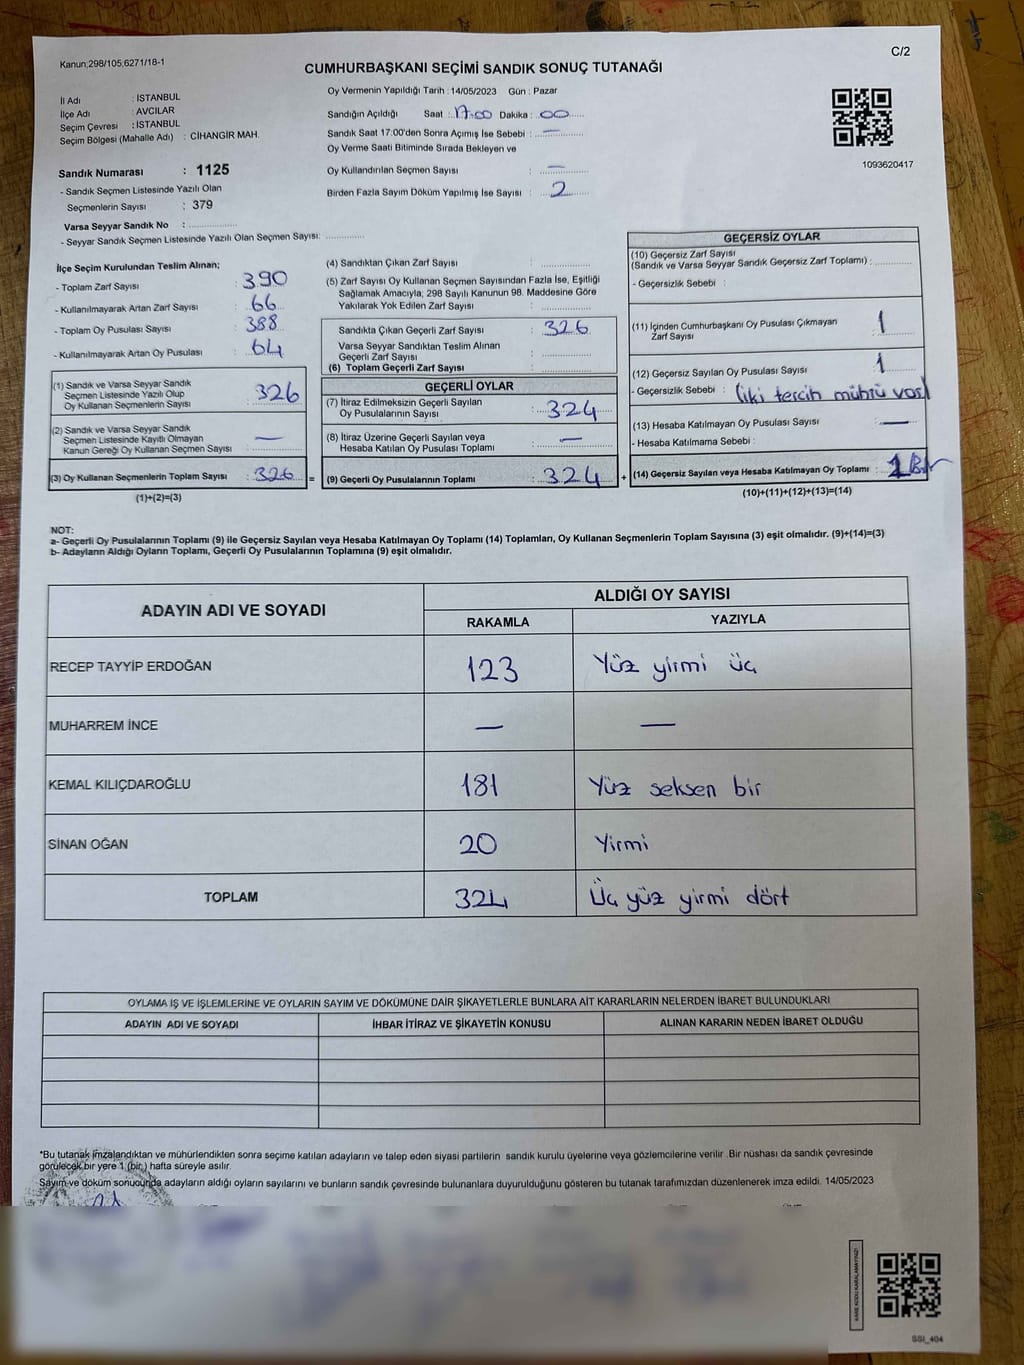 Kanun;298/105;6271/18-1
C/2
CUMHURBAŞKANI SEÇİMİ SANDIK SONUÇ TUTANAĞI
İl Adı : İSTANBUL
İlçe Adı : AVCILAR
Seçim Çevresi : İSTANBUL
Seçim Bölgesi (Mahalle Adı) : CİHANGİR MAH.
Sandık Numarası : 1125
- Sandık Seçmen Listesinde Yazılı Olan
Seçmenlerin Sayısı : 379
Varsa Seyyar Sandık No :
- Seyyar Sandık Seçmen Listesinde Yazılı Olan Seçmen Sayısı:
Oy Vermenin Yapıldığı Tarih : 14/05/2023 Gün : Pazar
Sandığın Açıldığı Saat : 17:00 Dakika : 00
Sandık Saat 17:00'den Sonra Açımış İse Sebebi : —
Oy Verme Saati Bitiminde Sırada Bekleyen ve
Oy Kullandırılan Seçmen Sayısı : —
Birden Fazla Sayım Döküm Yapılmış İse Sayısı : 2
1093620417
İlçe Seçim Kurulundan Teslim Alınan;
- Toplam Zarf Sayısı : 390
- Kullanılmayarak Artan Zarf Sayısı : 66
- Toplam Oy Pusulası Sayısı : 388
- Kullanılmayarak Artan Oy Pusulası : 64
(1) Sandık ve Varsa Seyyar Sandık
Seçmen Listesinde Yazılı Olup
Oy Kullanan Seçmenlerin Sayısı : 326
(2) Sandık ve Varsa Seyyar Sandık
Seçmen Listesinde Kayıtlı Olmayan
Kanun Gereği Oy Kullanan Seçmen Sayısı : —
(3) Oy Kullanan Seçmenlerin Toplam Sayısı : 326 =
(1)+(2)=(3)
(4) Sandıktan Çıkan Zarf Sayısı :
(5) Zarf Sayısı Oy Kullanan Seçmen Sayısından Fazla İse, Eşitliği
Sağlamak Amacıyla; 298 Sayılı Kanunun 98. Maddesine Göre
Yakılarak Yok Edilen Zarf Sayısı :
Sandıkta Çıkan Geçerli Zarf Sayısı : 326
Varsa Seyyar Sandıktan Teslim Alınan
Geçerli Zarf Sayısı :
(6) Toplam Geçerli Zarf Sayısı :
GEÇERLİ OYLAR
(7) İtiraz Edilmeksizin Geçerli Sayılan
Oy Pusulalarının Sayısı : 324
(8) İtiraz Üzerine Geçerli Sayılan veya
Hesaba Katılan Oy Pusulası Toplamı : —
(9) Geçerli Oy Pusulalarının Toplamı : 324 +
GEÇERSİZ OYLAR
(10) Geçersiz Zarf Sayısı
(Sandık ve Varsa Seyyar Sandık Geçersiz Zarf Toplamı) :
- Geçersizlik Sebebi :
(11) İçinden Cumhurbaşkanı Oy Pusulası Çıkmayan
Zarf Sayısı : 1
(12) Geçersiz Sayılan Oy Pusulası Sayısı : 1
- Geçersizlik Sebebi : (iki tercih mührü var)
(13) Hesaba Katılmayan Oy Pusulası Sayısı : —
- Hesaba Katılmama Sebebi :
(14) Geçersiz Sayılan veya Hesaba Katılmayan Oy Toplamı :
(10)+(11)+(12)+(13)=(14)
NOT:
a- Geçerli Oy Pusulalarının Toplamı (9) ile Geçersiz Sayılan veya Hesaba Katılmayan Oy Toplamı (14) Toplamları, Oy Kullanan Seçmenlerin Toplam Sayısına (3) eşit olmalıdır. (9)+(14)=(3)
b- Adayların Aldığı Oyların Toplamı, Geçerli Oy Pusulalarının Toplamına (9) eşit olmalıdır.
ADAYIN ADI VE SOYADI
ALDIĞI OY SAYISI
RAKAMLA YAZIYLA
RECEP TAYYİP ERDOĞAN 123 Yüz yirmi üç
MUHARREM İNCE — —
KEMAL KILIÇDAROĞLU 181 Yüz seksen bir
SİNAN OĞAN 20 Yirmi
TOPLAM 324 Üç yüz yirmi dört
OYLAMA İŞ VE İŞLEMLERİNE VE OYLARIN SAYIM VE DÖKÜMÜNE DAİR ŞİKAYETLERLE BUNLARA AİT KARARLARIN NELERDEN İBARET BULUNDUKLARI
ADAYIN ADI VE SOYADI İHBAR İTİRAZ VE ŞİKAYETİN KONUSU ALINAN KARARIN NEDEN İBARET OLDUĞU
*Bu tutanak imzalandıktan ve mühürlendikten sonra seçime katılan adayların ve talep eden siyasi partilerin sandık kurulu üyelerine veya gözlemcilerine verilir .Bir nüshası da sandık çevresinde
görülecek bir yere 1 (bir ) hafta süreyle asılır.
Sayım ve döküm sonucunda adayların aldığı oyların sayılarını ve bunların sandık çevresinde bulunanlara duyurulduğunu gösteren bu tutanak tarafımızdan düzenlenerek imza edildi. 14/05/2023
KARE KODU KARALAMAYINIZ!
SSI_404